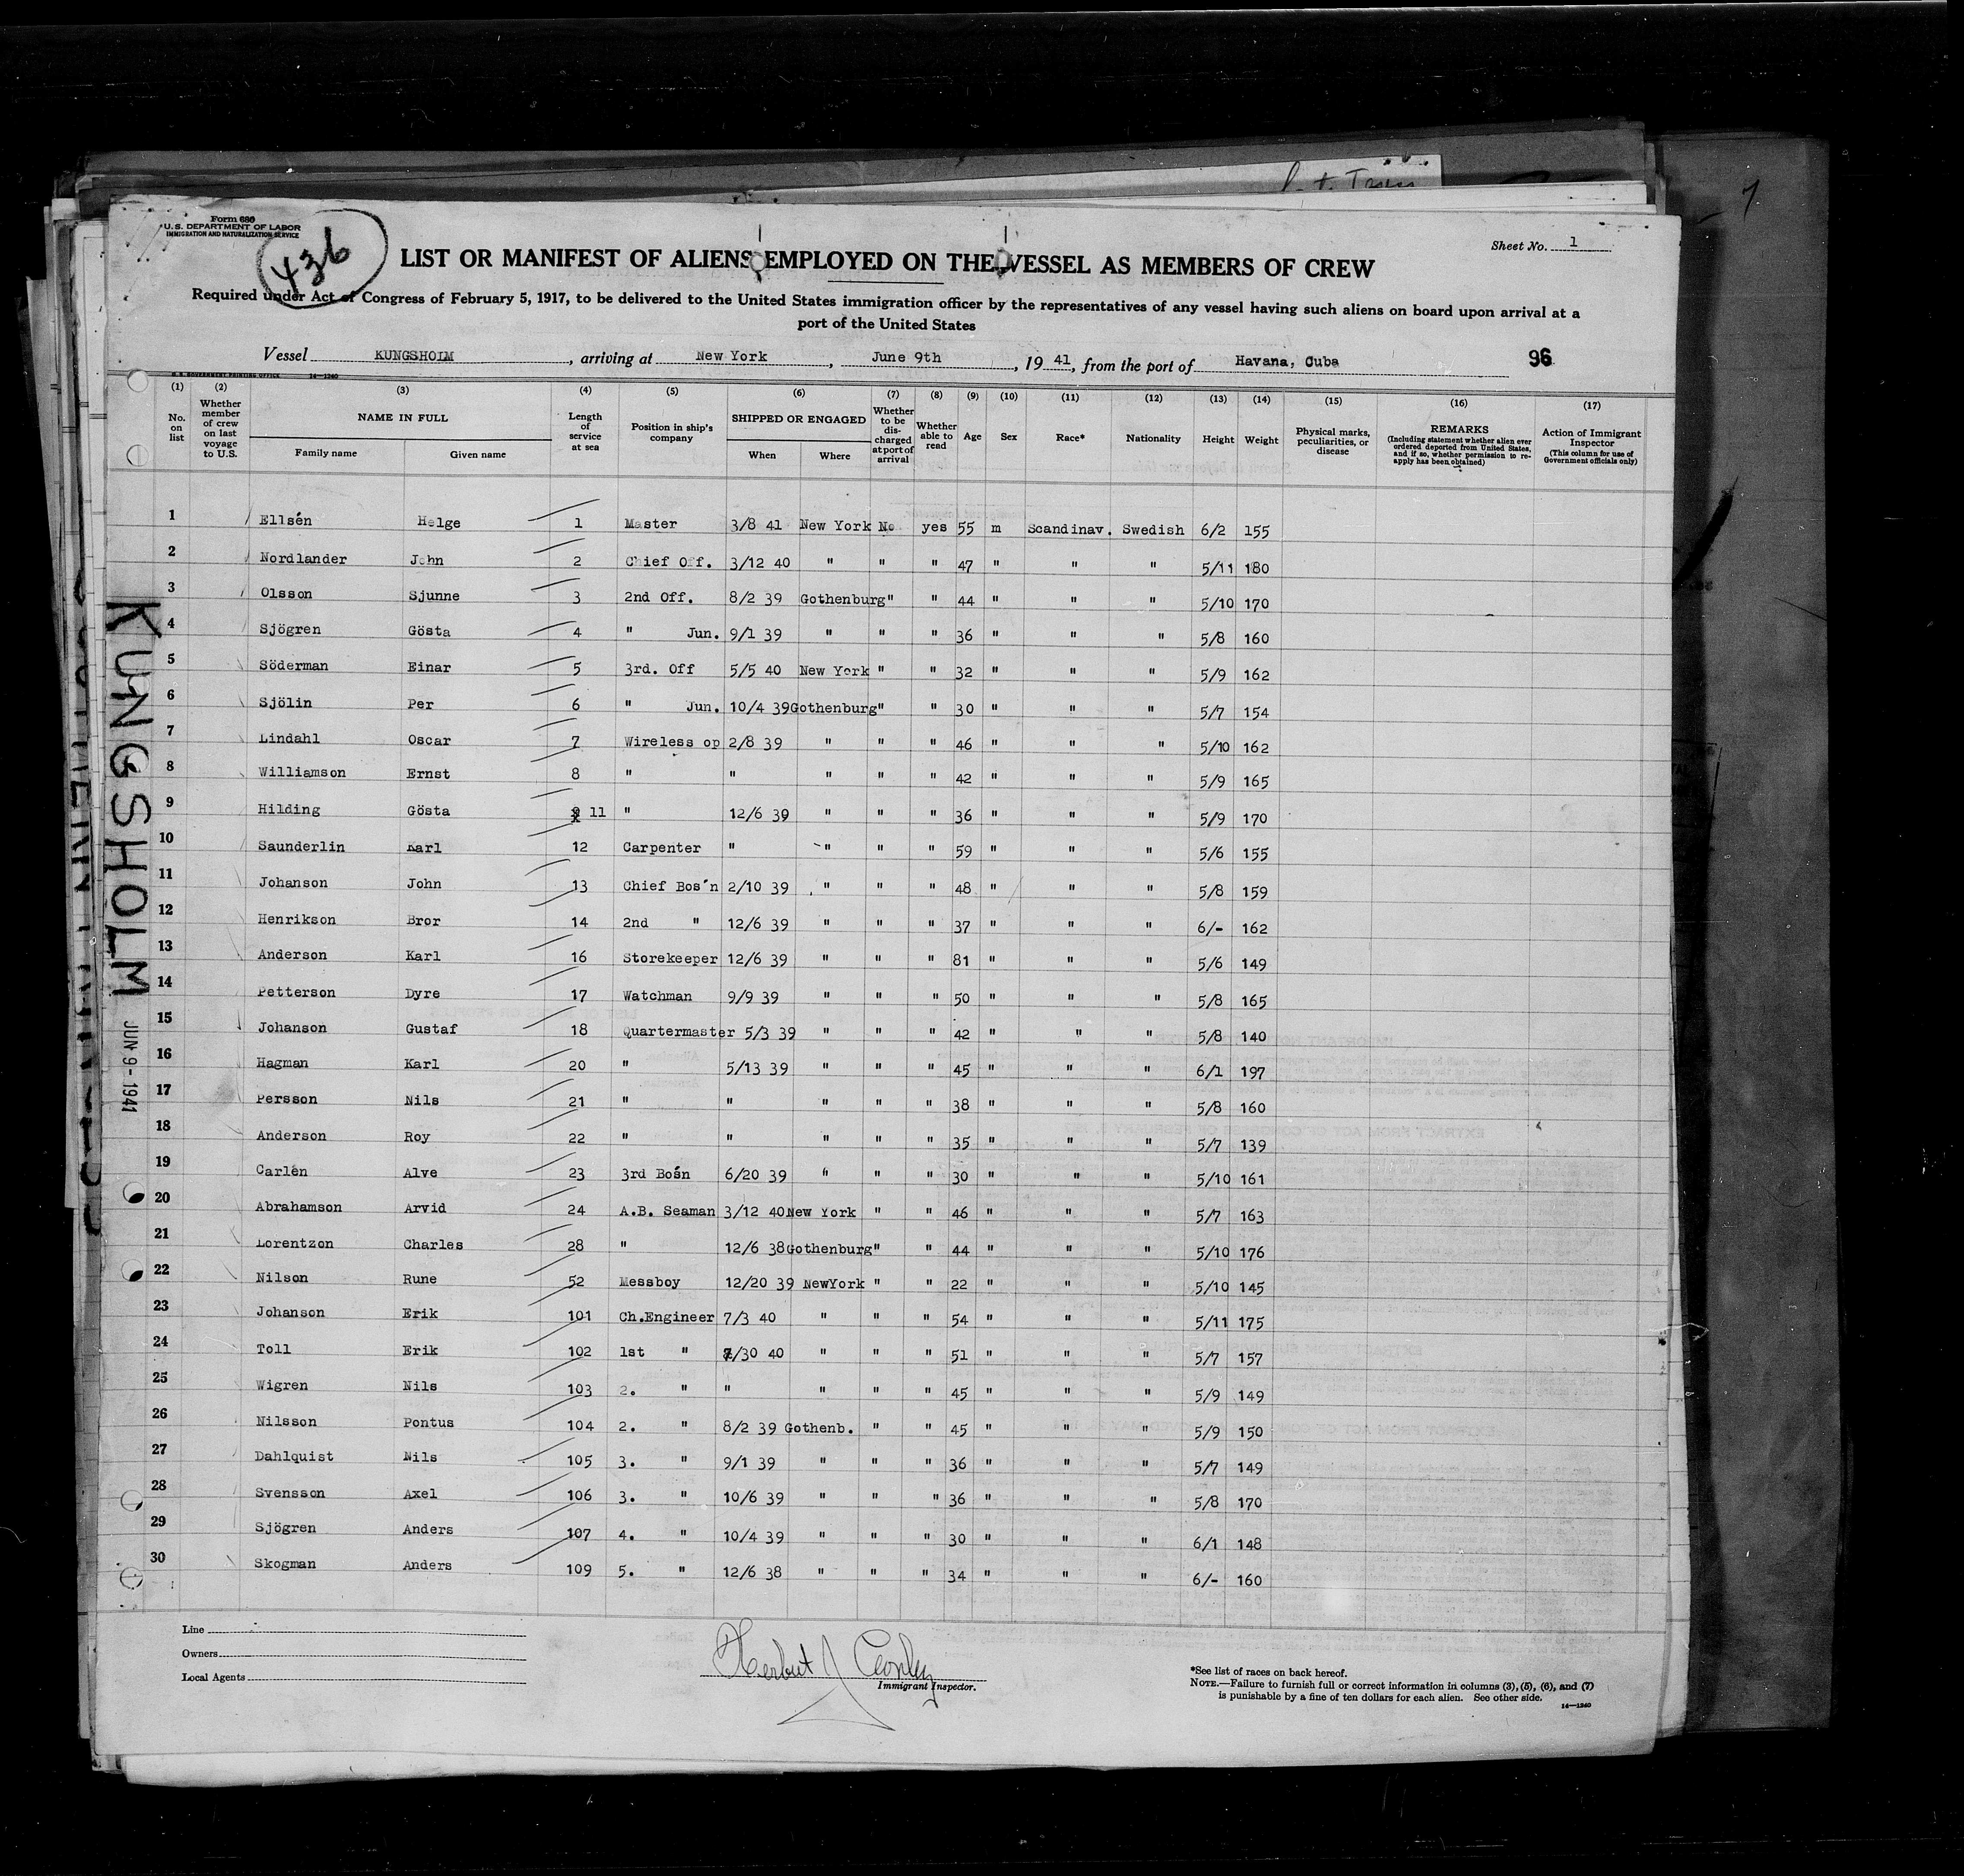 Form 680
U. S. DEPARTMENT OF LABOR
IMMIGRATION AND NATURALIZATION SERVICE
436
Sheet No. 1
LIST OR MANIFEST OF ALIENS EMPLOYED ON THE VESSEL AS MEMBERS OF CREW
Required under Act of Congress of February 5, 1917, to be delivered to the United States immigration officer by the representatives of any vessel having such aliens on board upon arrival at a
port of the United States
Vessel KUNGSHOLM, arriving at New York, June 9th, 1941, from the port of Havana, Cuba 96
U. S. GOVERNMENT PRINTING OFFICE 14—1240
(1) (2) (3) (4) (5) (6) (7) (8) (9) (10) (11) (12) (13) (14) (15) (16) (17)
No. on list Whether member of crew on last voyage to U.S. NAME IN FULL Family name Given name Length of service at sea Position in ship's company SHIPPED OR ENGAGED When Where Whether to be discharged at port of arrival Whether able to read Age Sex Race* Nationality Height Weight Physical marks, peculiarities, or disease REMARKS (Including statement whether alien ever ordered deported from United States, and if so, whether permission to reapply has been obtained) Action of Immigrant Inspector (This column for use of Government officials only)
1 Ellsén Helge 1 Master 3/8 41 New York No yes 55 m Scandinav. Swedish 6/2 155
2 Nordlander John 2 Chief Off. 3/12 40 " " " 47 " " " 5/11 180
3 Olsson Sjunne 3 2nd Off. 8/2 39 Gothenburg " " 44 " " " 5/10 170
4 Sjögren Gösta 4 " Jun. 9/1 39 " " " 36 " " " 5/8 160
5 Söderman Einar 5 3rd. Off 5/5 40 New York " " 32 " " " 5/9 162
6 Sjölin Per 6 " Jun. 10/4 39 Gothenburg " " 30 " " " 5/7 154
7 Lindahl Oscar 7 Wireless op 2/8 39 " " " 46 " " " 5/10 162
8 Williamson Ernst 8 " " " " " 42 " " " 5/9 165
9 Hilding Gösta 11 " 12/6 39 " " " 36 " " " 5/9 170
10 Saunderlin Karl 12 Carpenter " " " " 59 " " " 5/6 155
11 Johanson John 13 Chief Bos'n 2/10 39 " " " 48 " " " 5/8 159
12 Henrikson Bror 14 2nd " 12/6 39 " " " 37 " " " 6/- 162
13 Anderson Karl 16 Storekeeper 12/6 39 " " " 81 " " " 5/6 149
14 Petterson Dyre 17 Watchman 9/9 39 " " " 50 " " " 5/8 165
15 Johanson Gustaf 18 Quartermaster 5/3 39 " " " 42 " " " 5/8 140
16 Hagman Karl 20 " 5/13 39 " " " 45 " " " 6/1 197
17 Persson Nils 21 " " " " " 38 " " " 5/8 160
18 Anderson Roy 22 " " " " " 35 " " " 5/7 139
19 Carlén Alve 23 3rd Bośn 6/20 39 " " " 30 " " " 5/10 161
20 Abrahamson Arvid 24 A.B. Seaman 3/12 40 New York " " 46 " " " 5/7 163
21 Lorentzon Charles 28 " 12/6 38 Gothenburg " " 44 " " " 5/10 176
22 Nilson Rune 52 Messboy 12/20 39 NewYork " " 22 " " " 5/10 145
23 Johanson Erik 101 Ch.Engineer 7/3 40 " " " 54 " " " 5/11 175
24 Toll Erik 102 1st " /30 40 " " " 51 " " " 5/7 157
25 Wigren Nils 103 2. " " " " " 45 " " " 5/9 149
26 Nilsson Pontus 104 2. " 8/2 39 Gothenb. " " 45 " " " 5/9 150
27 Dahlquist Nils 105 3. " 9/1 39 " " " 36 " " " 5/7 149
28 Svensson Axel 106 3. " 10/6 39 " " " 36 " " " 5/8 170
29 Sjögren Anders 107 4. " 10/4 39 " " " 30 " " " 6/1 148
30 Skogman Anders 109 5. " 12/6 38 " " " 34 " " " 6/- 160
KUNGSHOLM
JUN 9 - 1941
Line
Owners
Local Agents
Herbert J Conley
Immigrant Inspector.
*See list of races on back hereof.
NOTE.—Failure to furnish full or correct information in columns (3), (5), (6), and (7)
is punishable by a fine of ten dollars for each alien. See other side.
14—1240